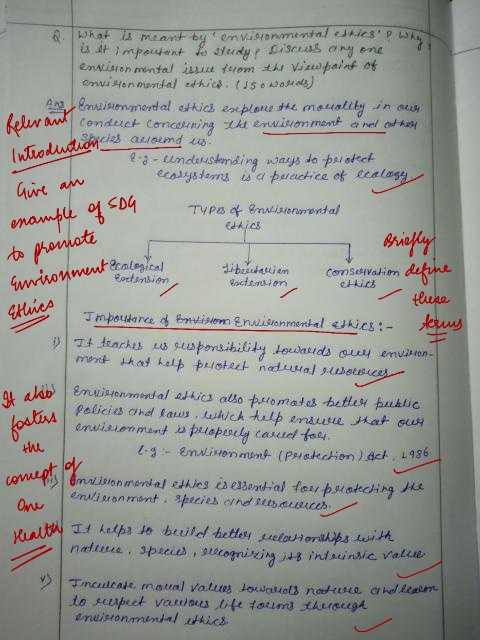 Q. What is meant by 'environmental ethics'? Why
is it important to study? Discuss any one
environmental issue from the viewpoint of
environmental ethics. (150 words)
Ans Environmental ethics explore the morality in our
conduct concerning the environment and other
species around us.
e.g - Understanding ways to protect
ecosystems is a practice of ecology.
Relevant
Introduction
Give an
example of SDG
to promote
Environment
Ethics
TYPES of Environmental
ethics
Ecological
Extension
libertarian
extension
Conservation
ethics
Briefly
define
these
terms
Importance of Environ Environmental ethics :-
i) It teaches us responsibility towards our environ-
ment that help protect natural resources.
Environmental ethics also promotes better public
policies and laws, which help ensure that our
environment is properly cared for.
e.g :- Environment (Protection) Act, 1986.
It also
fosters
the
concept of
One
Health
iii) Environmental ethics is essential for protecting the
environment, species and resources.
It helps to build better relationships with
nature, species, recognizing its intrinsic value.
v) Inculcate moral values towards nature and learn
to respect various life forms through
environmental ethics.